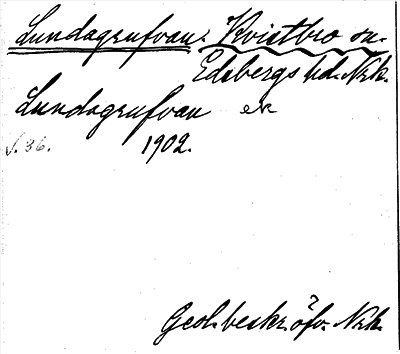 Lundagrufvan. Kvistbro sn.
Edsbergs hd. Nrk.
Lundagrufvan ek
s. 36. 1902.
Geol. beskr. öfv. Nrk.